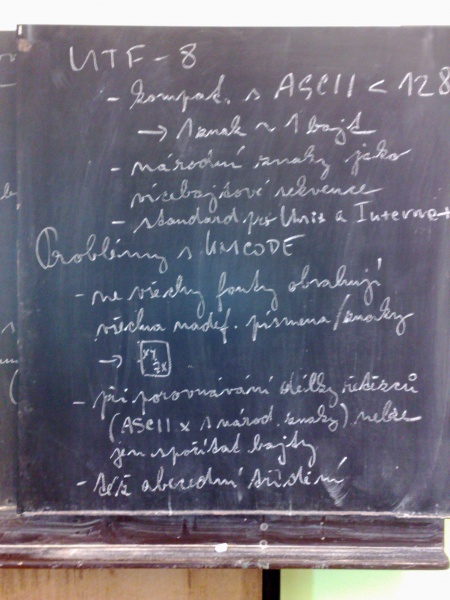 UTF-8
- kompat. s ASCII < 128
→ 1 znak ~ 1 bajt
- národní znaky jako
vícebajtové sekvence
- standard pro Unix a Internet
Problémy s UNICODE
- ne všechny fonty obsahují
všechna nadef. písmena/znaky
→ XY ZX
- při porovnávání délky řetězců
(ASCII x s národ. znaky) nelze
jen spočítat bajty
- též abecední třídění